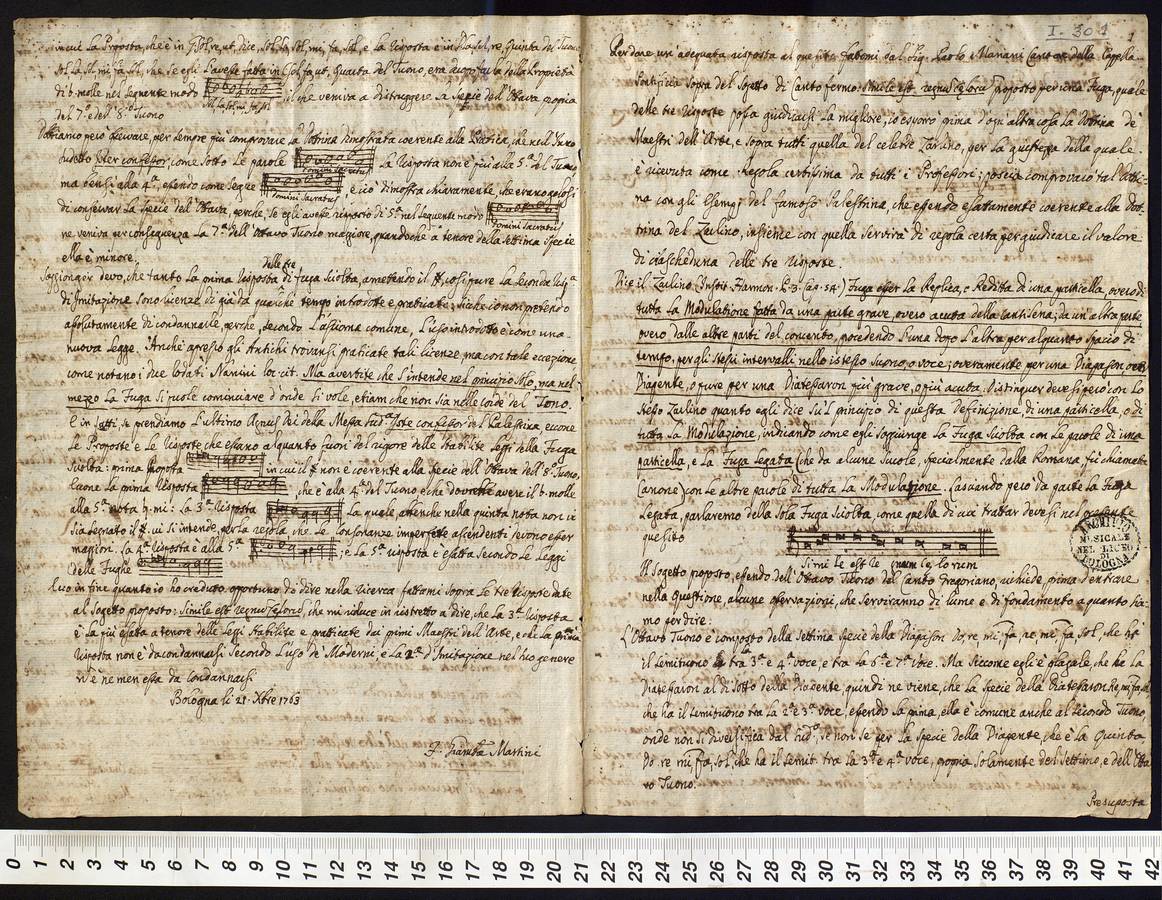 in cui la Proposta, che è in G sol, re, ut, dice, Sol, la, Sol, mi, fa, Sol, e la risposta è in D la, Sol, re, Quinta del Tuono
Sol, la, Sol, mi, fa, Sol, che se egli l'avesse fatta in C sol, fa, ut, Quarta del Tuono, era dalla Proprietà
di b. molle nel seguente modo il che veniva a distruggere la specie dell'Ottava propria
del 7.° e dell' 8.° Tuono
Dobbiamo però rilevare, per sempre più comprovare la Dottrina dimostrata coerente alla Pratica, che nell'Inno
Iste confessor, come sotto le parole la risposta non è più alla 5.ª del Tuono
Domini sacratus
ma bensì alla 4.ª, essendo come segue e ciò dimostra chiaramente, che erano gelosi
Domini Sacratus
di conservar la specie dell'Ottava, perche, se egli avesse risposto di 5.ª nel seguente modo
Domini Sacratus
ne veniva per conseguenza la 7.ª dell'Ottavo Tuono maggiore, quando che a tenore della settima specie
ella è minore.
delle tre
Soggionger devo, che tanto la prima risposta di fuga sciolta, ammettendo il #, così pure la seconda risp.ª
di Imitazione sono licenze di già da qualche tempo introdotte, e praticate; siché io non pretendo
assolutamente di condannarle, perche, secondo l'assioma comune, l'uso introdotto è come una
nuova legge. Anche appresso gli Antichi trovansi praticate tali licenze, ma con tale eccezione
come notano i due lodati Nanini loc. cit. Ma avertite che s'intende nel principio solo, ma nel
mezzo la Fuga si puole cominciare d'onde si vole, etiam che non sia nelle corde del Tono.
E in fatti, se prendiamo l'ultimo Agnus Dei della Messa sud.ª Iste confessor del Palestrina, eccone
le Proposte e le Risposte che escano alquanto fuori del rigore delle stabilite leggi della Fuga
sciolta: prima proposta in cui il # non è coerente alla specie dell'Ottava dell' 8.° Tuono,
Eccone la prima risposta che è alla 4.ª del Tuono e che dovrebbe avere il b. molle
alla 5.ª nota b. mi: La 3.ª risposta la quale, attenche nella quinta nota non vi
sia segnato il # vi si intende, per la regola, che le consonanze imperfette ascendenti devono esser
maggiori. La 4.ª risposta è alla 5.ª ; e la 5.ª risposta è esatta secondo le leggi
delle Fughe
Ecco in fine quanto io ho creduto opportuno di dire nella ricerca fattami sopra le tre risposte date
al Sogetto proposto: Simile est regnum celorum, che mi riduce in ristretto a dire, che la 3.ª risposta
è la più esatta a tenore delle leggi stabilite e pratticate dai primi Maestri dell'Arte, e che la prima
risposta non è da condannarsi secondo l'uso de' Moderni e la 2.ª d'Imitazione nel suo genere
n'è ne men essa da condannarsi
Bologna li 21 Xbre 1763
F. Giamb.ª Martini
I. 30 1
1
Per dare un'adequata risposta al quesito fattomi dal Sig. Paolo Mariani Cantore della Cappella
Pontificia sopra del Sogetto di Canto fermo: Simile est regnu celoru proposto per una Fuga, quale
delle tre risposte possa giudicarsi la migliore, io esporrò prima d'ogni altra cosa la Dottrina de'
Maestri dell'Arte, e sopra tutti quella del celebre Zarlino, per la giustezza della quale
è ricevuta come Regola certissima da tutti i Professori; poscia comproverò tal dottri-
na con gli Esempj del famoso Palestrina, che essendo esattamente coerente alla dot-
trina del Zarlino, insieme con quella servirà di regola certa per giudicare il valore
di ciascheduna delle tre risposte.
Dice il Zarlino (Instit. Harmon. P. 3. Cap. 54.) Fuga esser la Replica, o Reditta di una particella, overo di
tutta la Modulazione fatta da una parte grave, overo acuta della Cantilena; da un'altra parte
overo dalle altre parti del concento, procedendo l'una dopo l'altra per alquanto spacio di
tempo, per gli stessi intervalli nello istesso suono, o voce; overamente per una Diapason over
Diapente, o pure per una Diatessaron più grave, o più acuta. Distinguer devesi però con lo
stesso Zarlino quanto egli dice su'l principio di questa definizione, di una particella, o di
tutta la Modulazione, indicando come egli soggiunge la Fuga Sciolta con le parole di una
particella, e la Fuga Legata (che da alcune Scuole, specialmente dalla Romana, fu chiamata
Canone) con le altre parole di tutta la Modulazione. Lasciando però da parte la Fuga
Legata, parlaremo della sola Fuga Sciolta, come quella di cui trattar devesi nel presente
quesito
Simile est regnum celorum
ARCHIVIO
MUSICALE
NEL LICEO
DI
BOLOGNA
Il Sogetto proposto, essendo dell'Ottavo Tuono del Canto Gregoriano, richiede, prima d'entrare
nella Questione, alcune osservazioni, che serviranno di lume e di fondamento a quanto sia-
mo per dire:
L'Ottavo Tuono è composto della settima specie della Diapason Do, re, mi, fa, re, mi, fa, sol, che hà
il semituono tra la 3.ª e 4.ª voce, e tra la 6.ª e 7.ª voce. Ma siccome egli è plagale, che ha la
Diatessaron al di sotto della Diapente, quindi ne viene, che la specie della Diatessaron Re, mi, fa, sol
che ha il semituono tra la 2.ª e 3.ª voce, essendo la prima, ella è comune anche al secondo Tuono,
onde non si diversifica dal sud.°, se non se per la specie della Diapente, che è la Quarta
Do re mi fa, sol, che ha il semit. tra la 3.ª e 4.ª voce, propria solamente del settimo, e dell'Otta
vo Tuono.
Presuposta